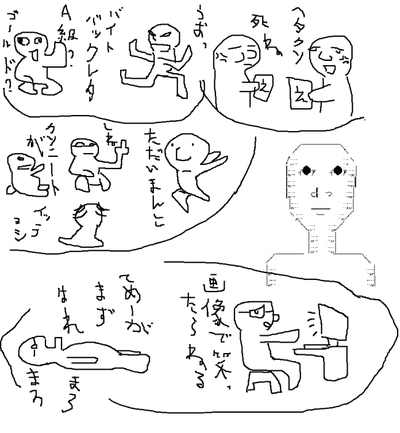 ヘタクソ
死ね
うおっ
バイト
バックレタ
A級?
ゴールド?
ただいまんこ
しね
クソニート
が
イッコ
ヨシ
画像で笑っ
たらねる
てめーが
まず
はれ
まろ
まろ